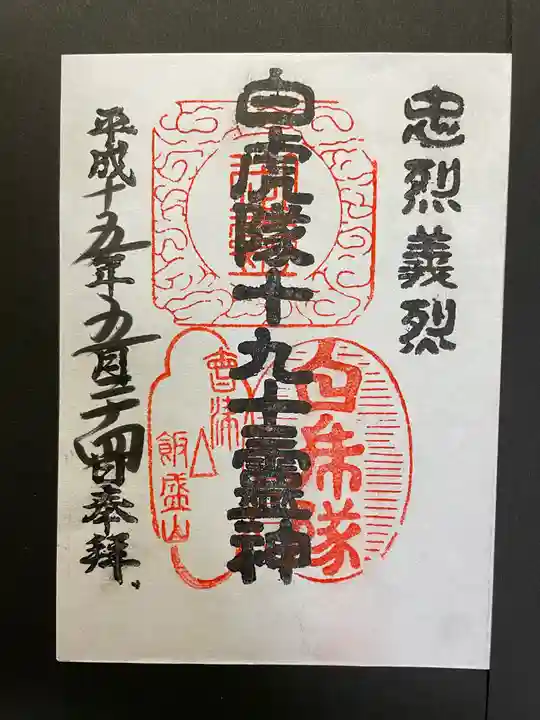 忠烈義烈
白虎隊十九士霊神
白虎隊
会津
飯盛山
平成十五年九月二十四日奉拝